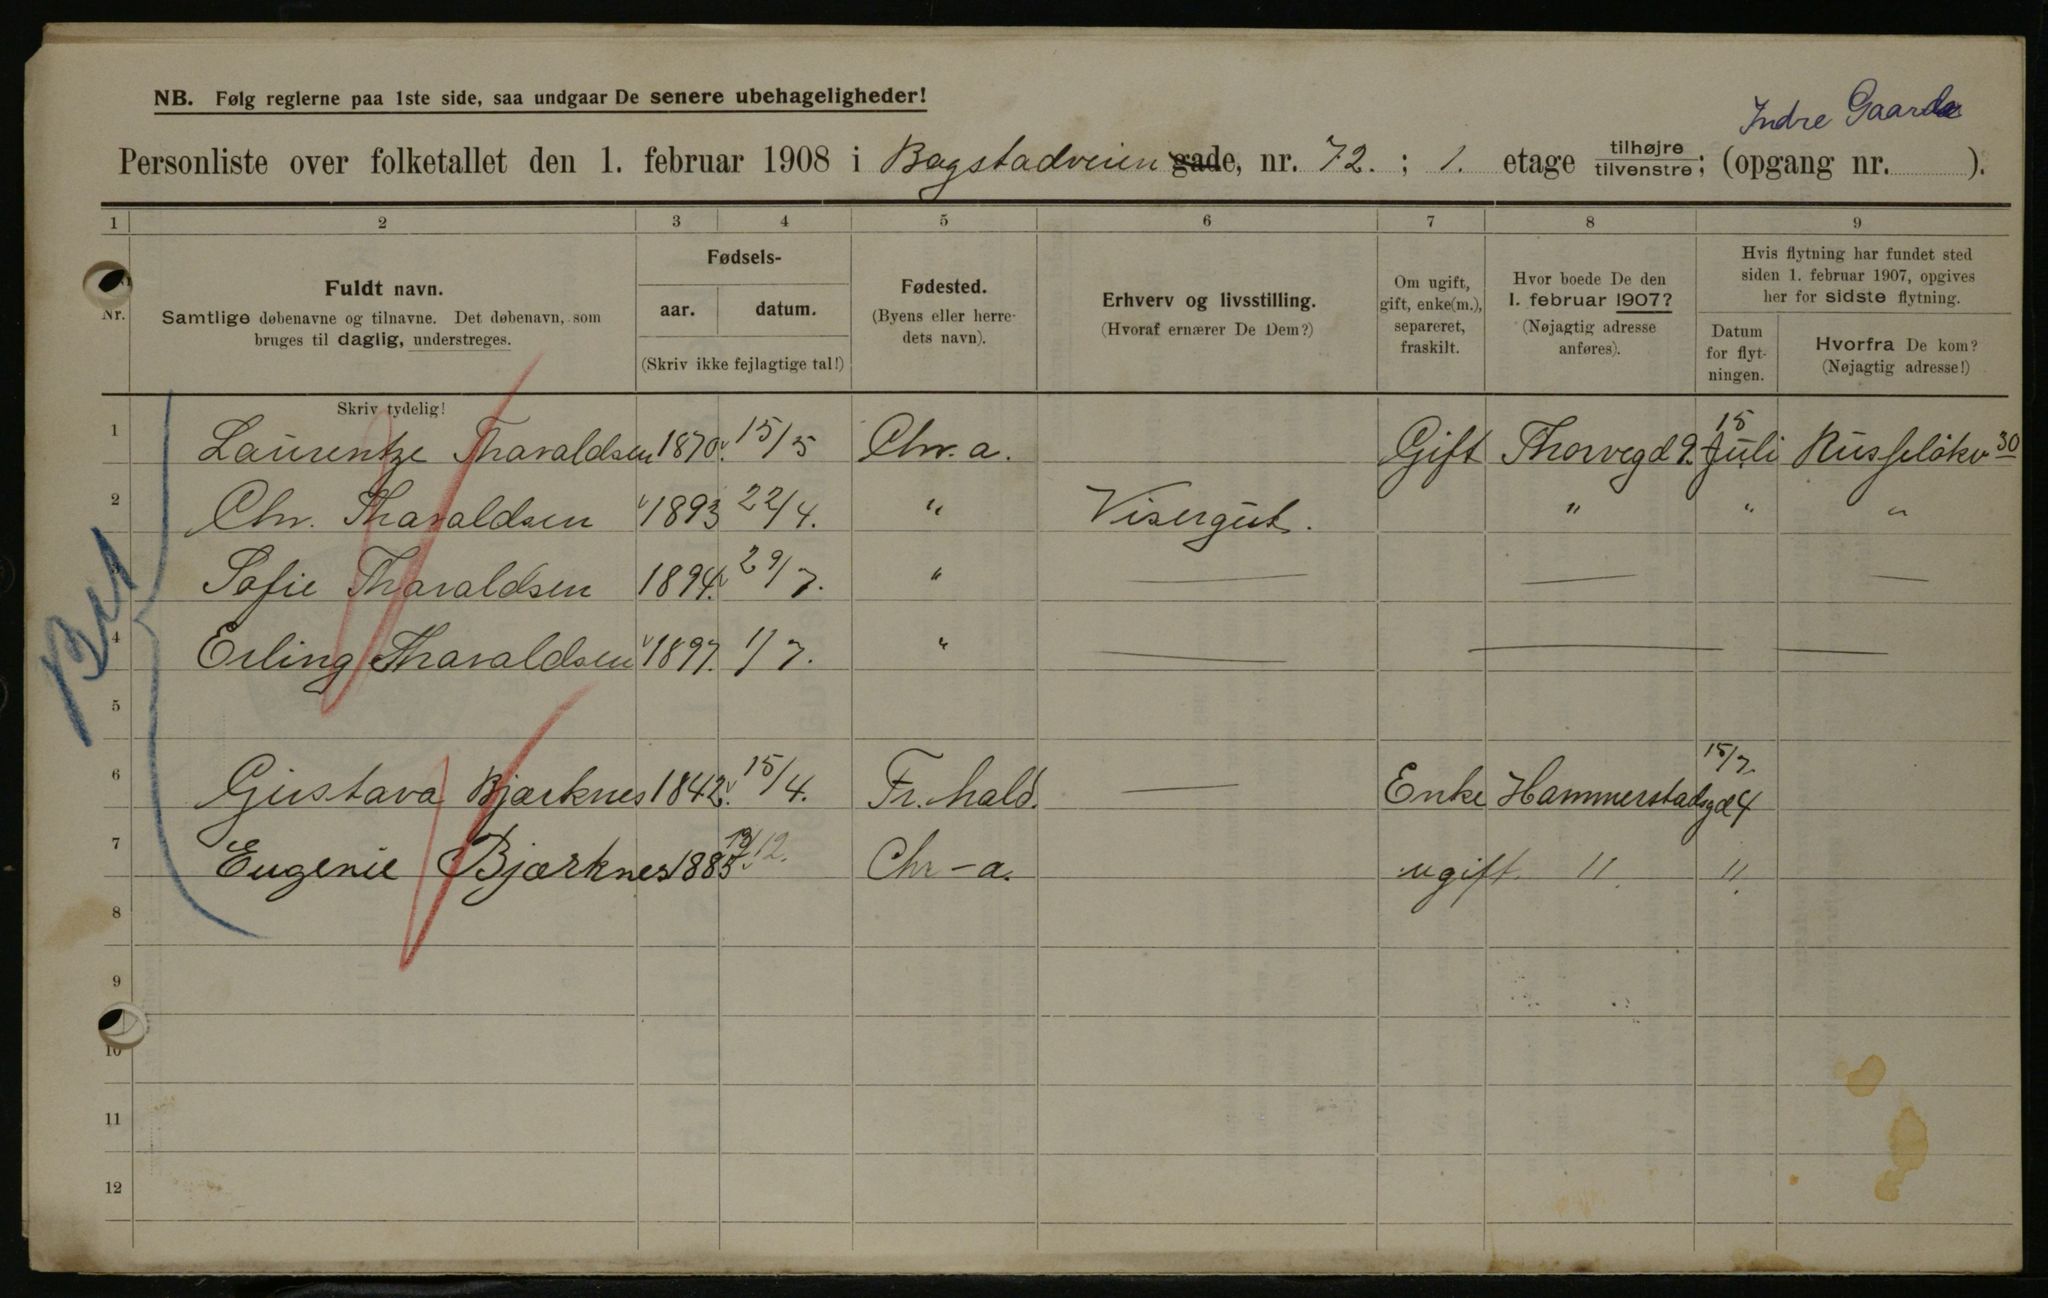 NB. Følg reglerne paa 1ste side, saa undgaar De senere ubehageligheder!
Indre Gaard
Personliste over folketallet den 1. februar 1908 i Bogstadveien gade, nr. 72. ; 1. etage tilhøjre tilvenstre; (opgang nr. ).
1 2 3 4 5 6 7 8 9
Nr.
Fuldt navn.
Samtlige døbenavne og tilnavne. Det døbenavn, som
bruges til daglig, understreges.
Skriv tydelig!
Fødsels-
aar. datum.
(Skriv ikke fejlagtige tal!)
Fødested.
(Byens eller herre-
dets navn).
Erhverv og livsstilling.
(Hvoraf ernærer De Dem?)
Om ugift,
gift, enke(m.),
separeret,
fraskilt.
Hvor boede De den
1. februar 1907?
(Nøjagtig adresse
anføres).
Hvis flytning har fundet sted
siden 1. februar 1907, opgives
her for sidste flytning.
Datum
for flyt-
ningen.
Hvorfra De kom?
(Nøjagtig adresse!)
1 Laurentze Tharaldsen 1870. 15/5 Chr. a. Gift Thorvegd 9. 15 Juli Russeløkv 30
2 Chr. Tharaldsen 1893 22/4. " Visergut. " " "
3 Sofie Tharaldsen 1894. 29/7. " — — —
4 Erling Tharaldsen 1897. 1/7. " — — —
5
6 Gustava Bjærknes 1842. 15/4. Fr. hald. — Enke Hammerstadsgd 4 15/7.
7 Eugenie Bjærknes 1885 /12. Chr-a. ugift. " "
8
9
10
11
12